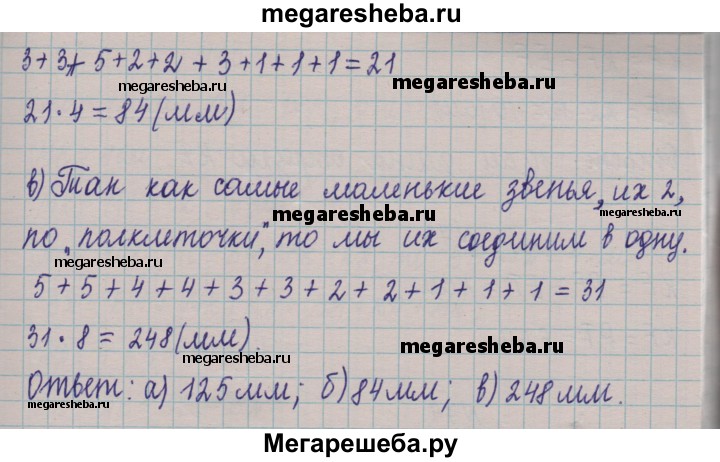 megaresheba.ru
3+3+5+2+2+3+1+1+1=21
megaresheba.ru
megaresheba.ru
21·4=84(мм)
в) Так как самые маленькие звенья, их 2,
megaresheba.ru
megaresheba.ru
по „полклеточки“, то мы их соединим в одну.
megaresheba.ru
5+5+4+4+3+3+2+2+1+1+1=31
31·8=248(мм).
megaresheba.ru
megaresheba.ru
Ответ: а) 125мм; б) 84мм; в) 248мм.
megaresheba.ru
megaresheba.ru
Мегарешеба.ру